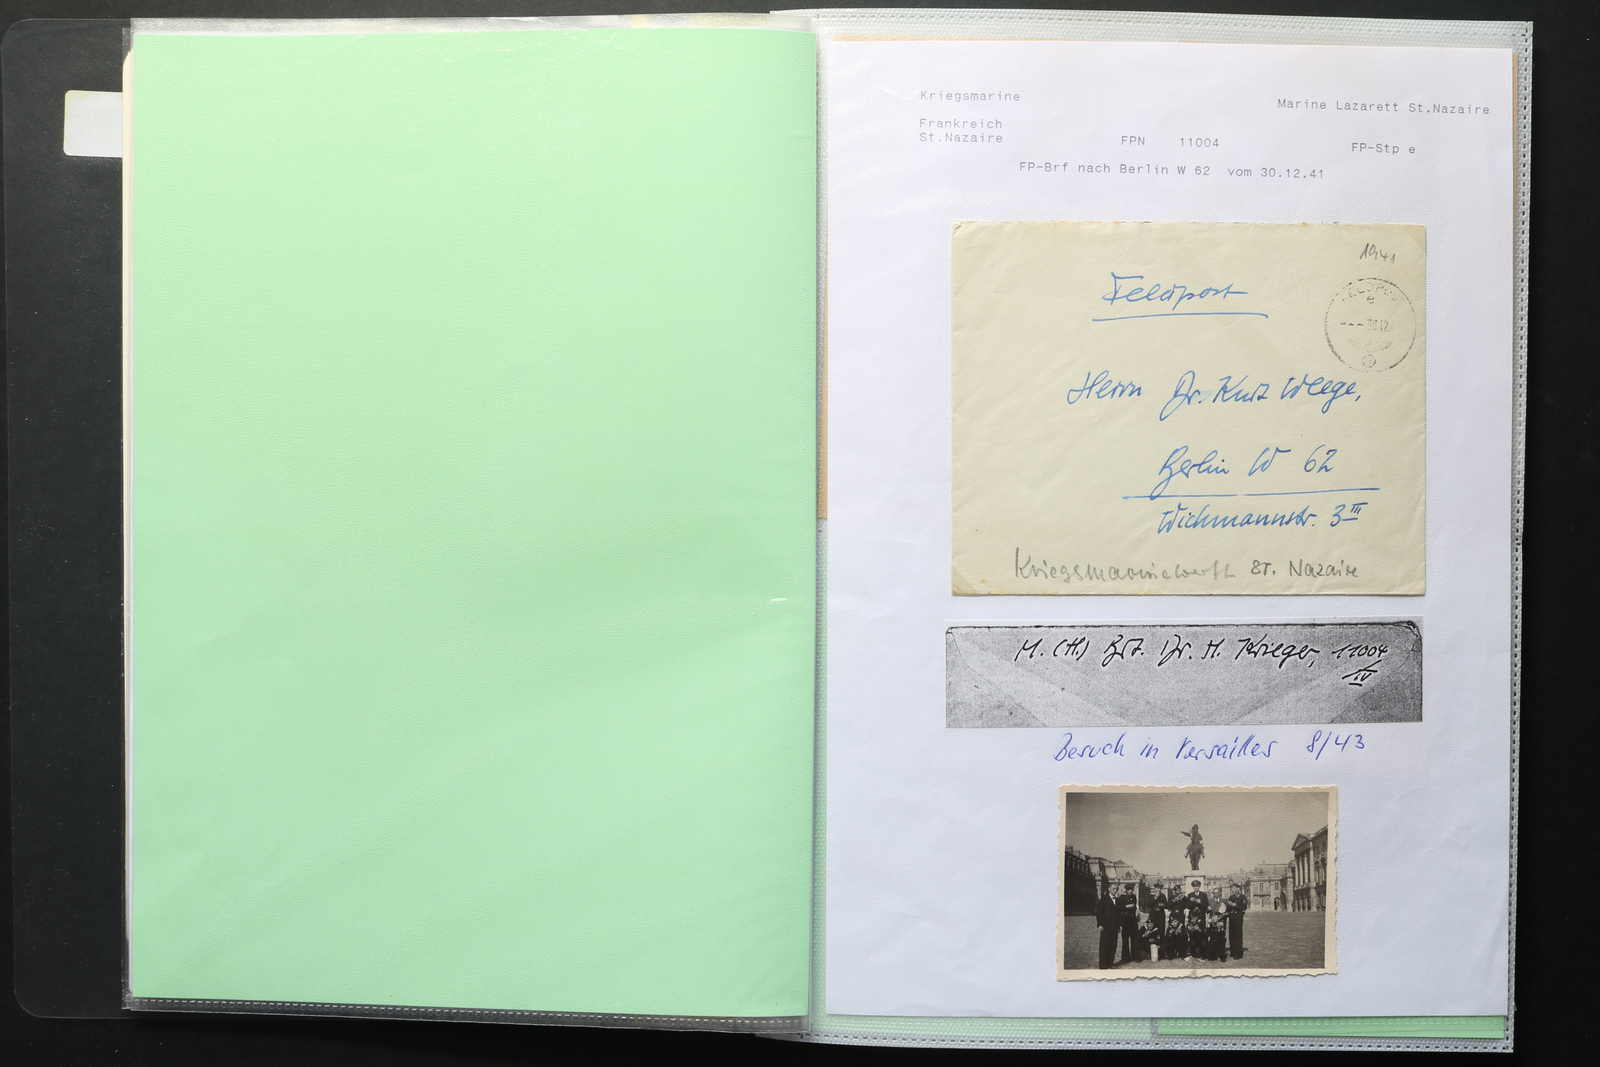 Kriegsmarine
Marine Lazarett St.Nazaire
Frankreich
St.Nazaire
FPN 11004
FP-Stp e
FP-Brf nach Berlin W 62 vom 30.12.41
1941
Feldpost
FELDPOST
e
--- 30.12
Herrn Dr. Kurt Weege,
Berlin W 62
Wichmannstr. 3 III
Kriegsmarinewerft St. Nazaire
M. (H.) Brt. Dr. H. Krieger, 11004
IV
Besuch in Versailles 8/43